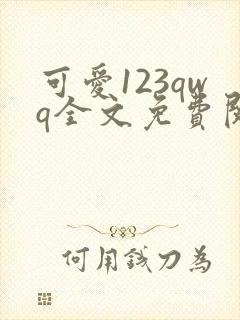 可愛123qw
q全文免費
何用錢刀為